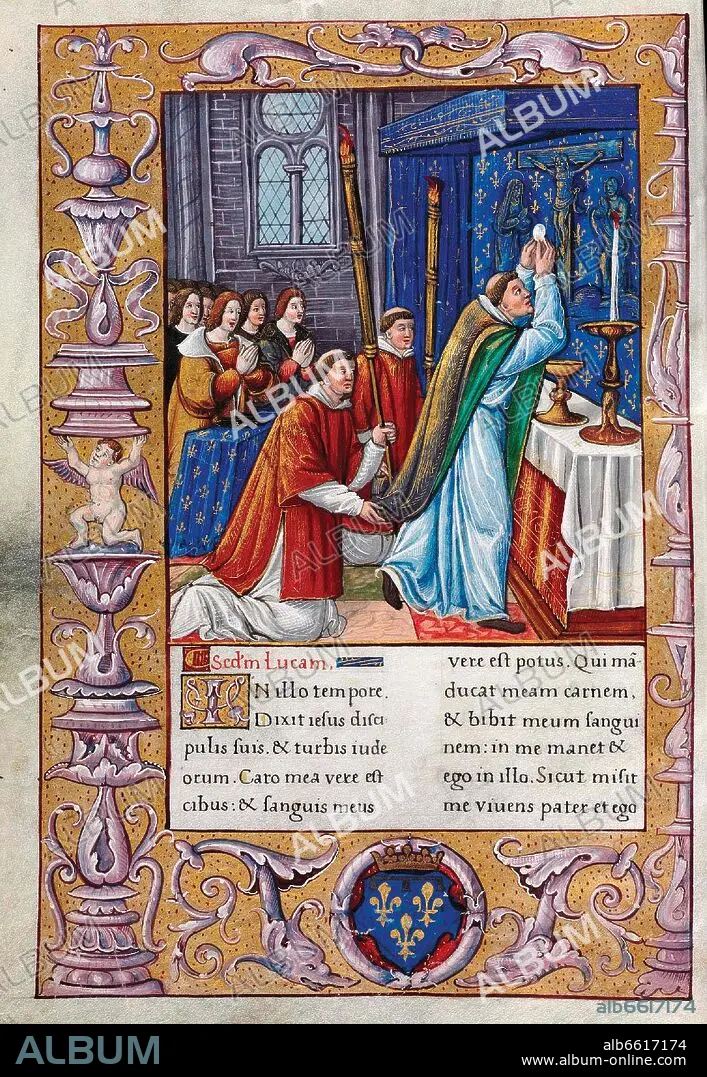 Scd'm Lucam,
IN illo tempore.
Dixit iesus disci
pulis suis. & turbis iude
orum. Caro mea vere est
cibus: & sanguis meus
vere est potus. Qui mā
ducat meam carnem,
& bibit meum sangui
nem: in me manet &
ego in illo. Sicut misit
me viuens pater et ego
alb6617174
ALBUM
alb6617174
www.album-online.com